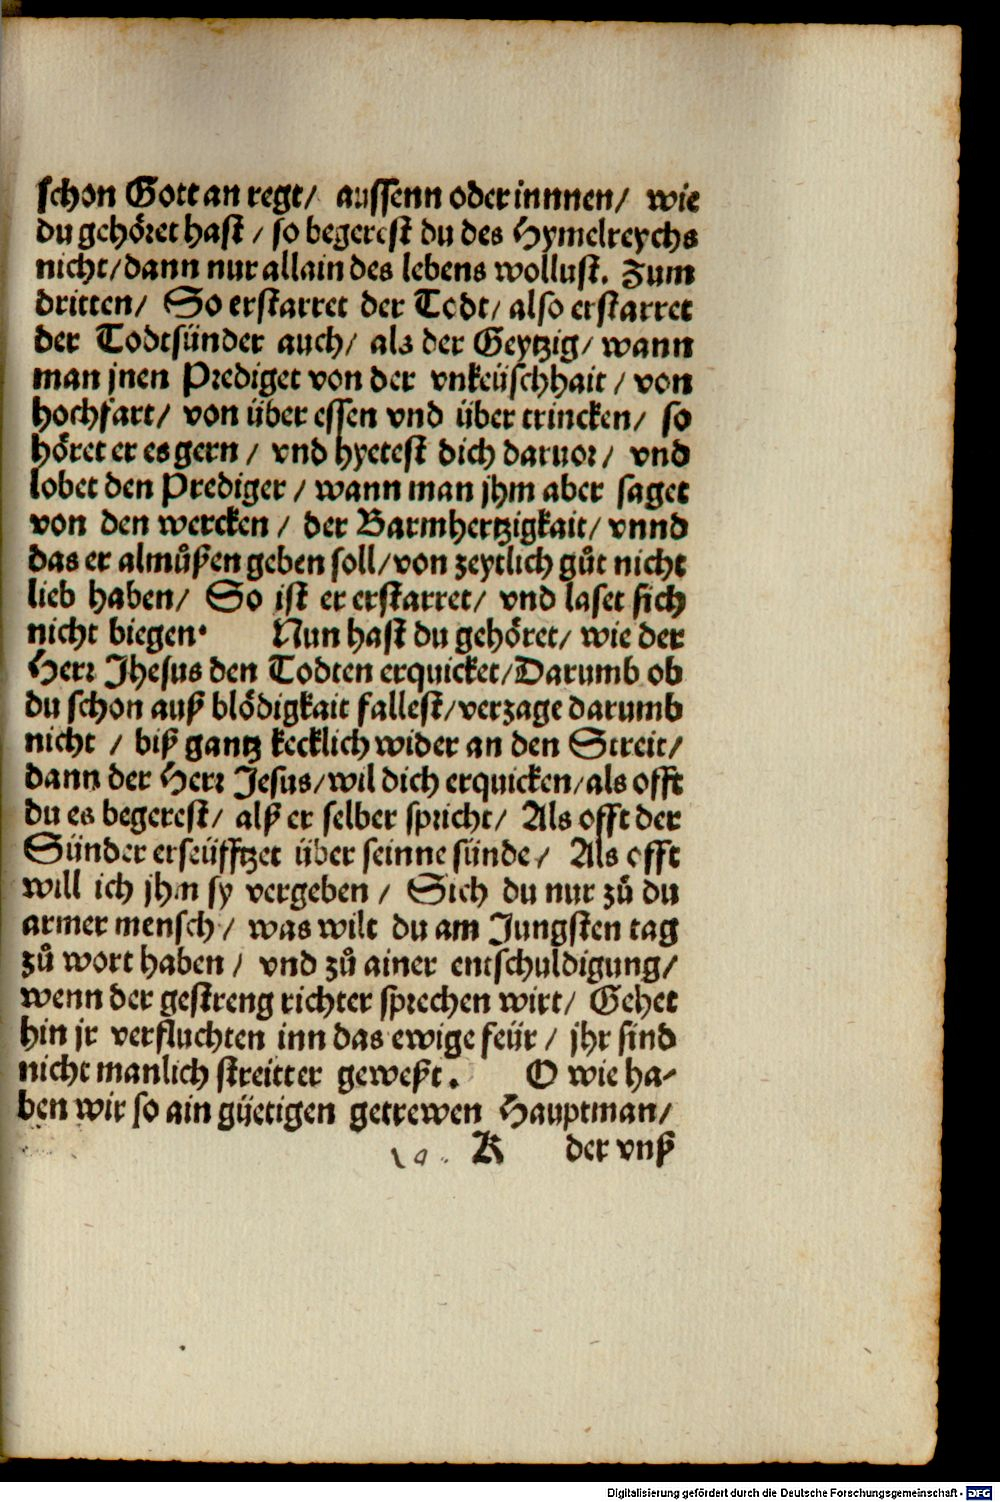 schon Gott an regt/ aussenn oder innnen/ wie
du gehöret hast / so begerest du des Hymelreychs
nicht/dann nur allain des lebens wollust. Zum
dritten/ So erstarret der Todt/ also erstarret
der Todtsünder auch/ als der Geytzig/ wann
man jnen Prediget von der vnkeüschhait / von
hochfart/ von über essen vnd über trincken/ so
höret er es gern / vnd hyetest dich daruor/ vnd
lobet den Prediger / wann man jhm aber saget
von den wercken / der Barmhertzigkait/ vnnd
das er almůßen geben soll/von zeytlich gůt nicht
lieb haben/ So ist er erstarret/ vnd laset sich
nicht biegen. Nun hast du gehöret/ wie der
Herr Jhesus den Todten erquicket/Darumb ob
du schon auß blödigkait fallest/verzage darumb
nicht / biß gantz kecklich wider an den Streit/
dann der Herr Jesus/wil dich erquicken/als offt
du es begerest/ alß er selber spricht/ Als offt der
Sünder erseüfftzet über seinne sünde/ Als offt
will ich jhm sy vergeben / Sich du nur zů du
armer mensch/ was wilt du am Jungsten tag
zů wort haben / vnd zů ainer entschuldigung/
wenn der gestreng richter sprechen wirt/ Gehet
hin jr verfluchten inn das ewige feür / jhr sind
nicht manlich streitter geweßt. O wie ha-
ben wir so ain güetigen getrewen Hauptman/
K der vnß
Digitalisierung gefördert durch die Deutsche Forschungsgemeinschaft - DFG